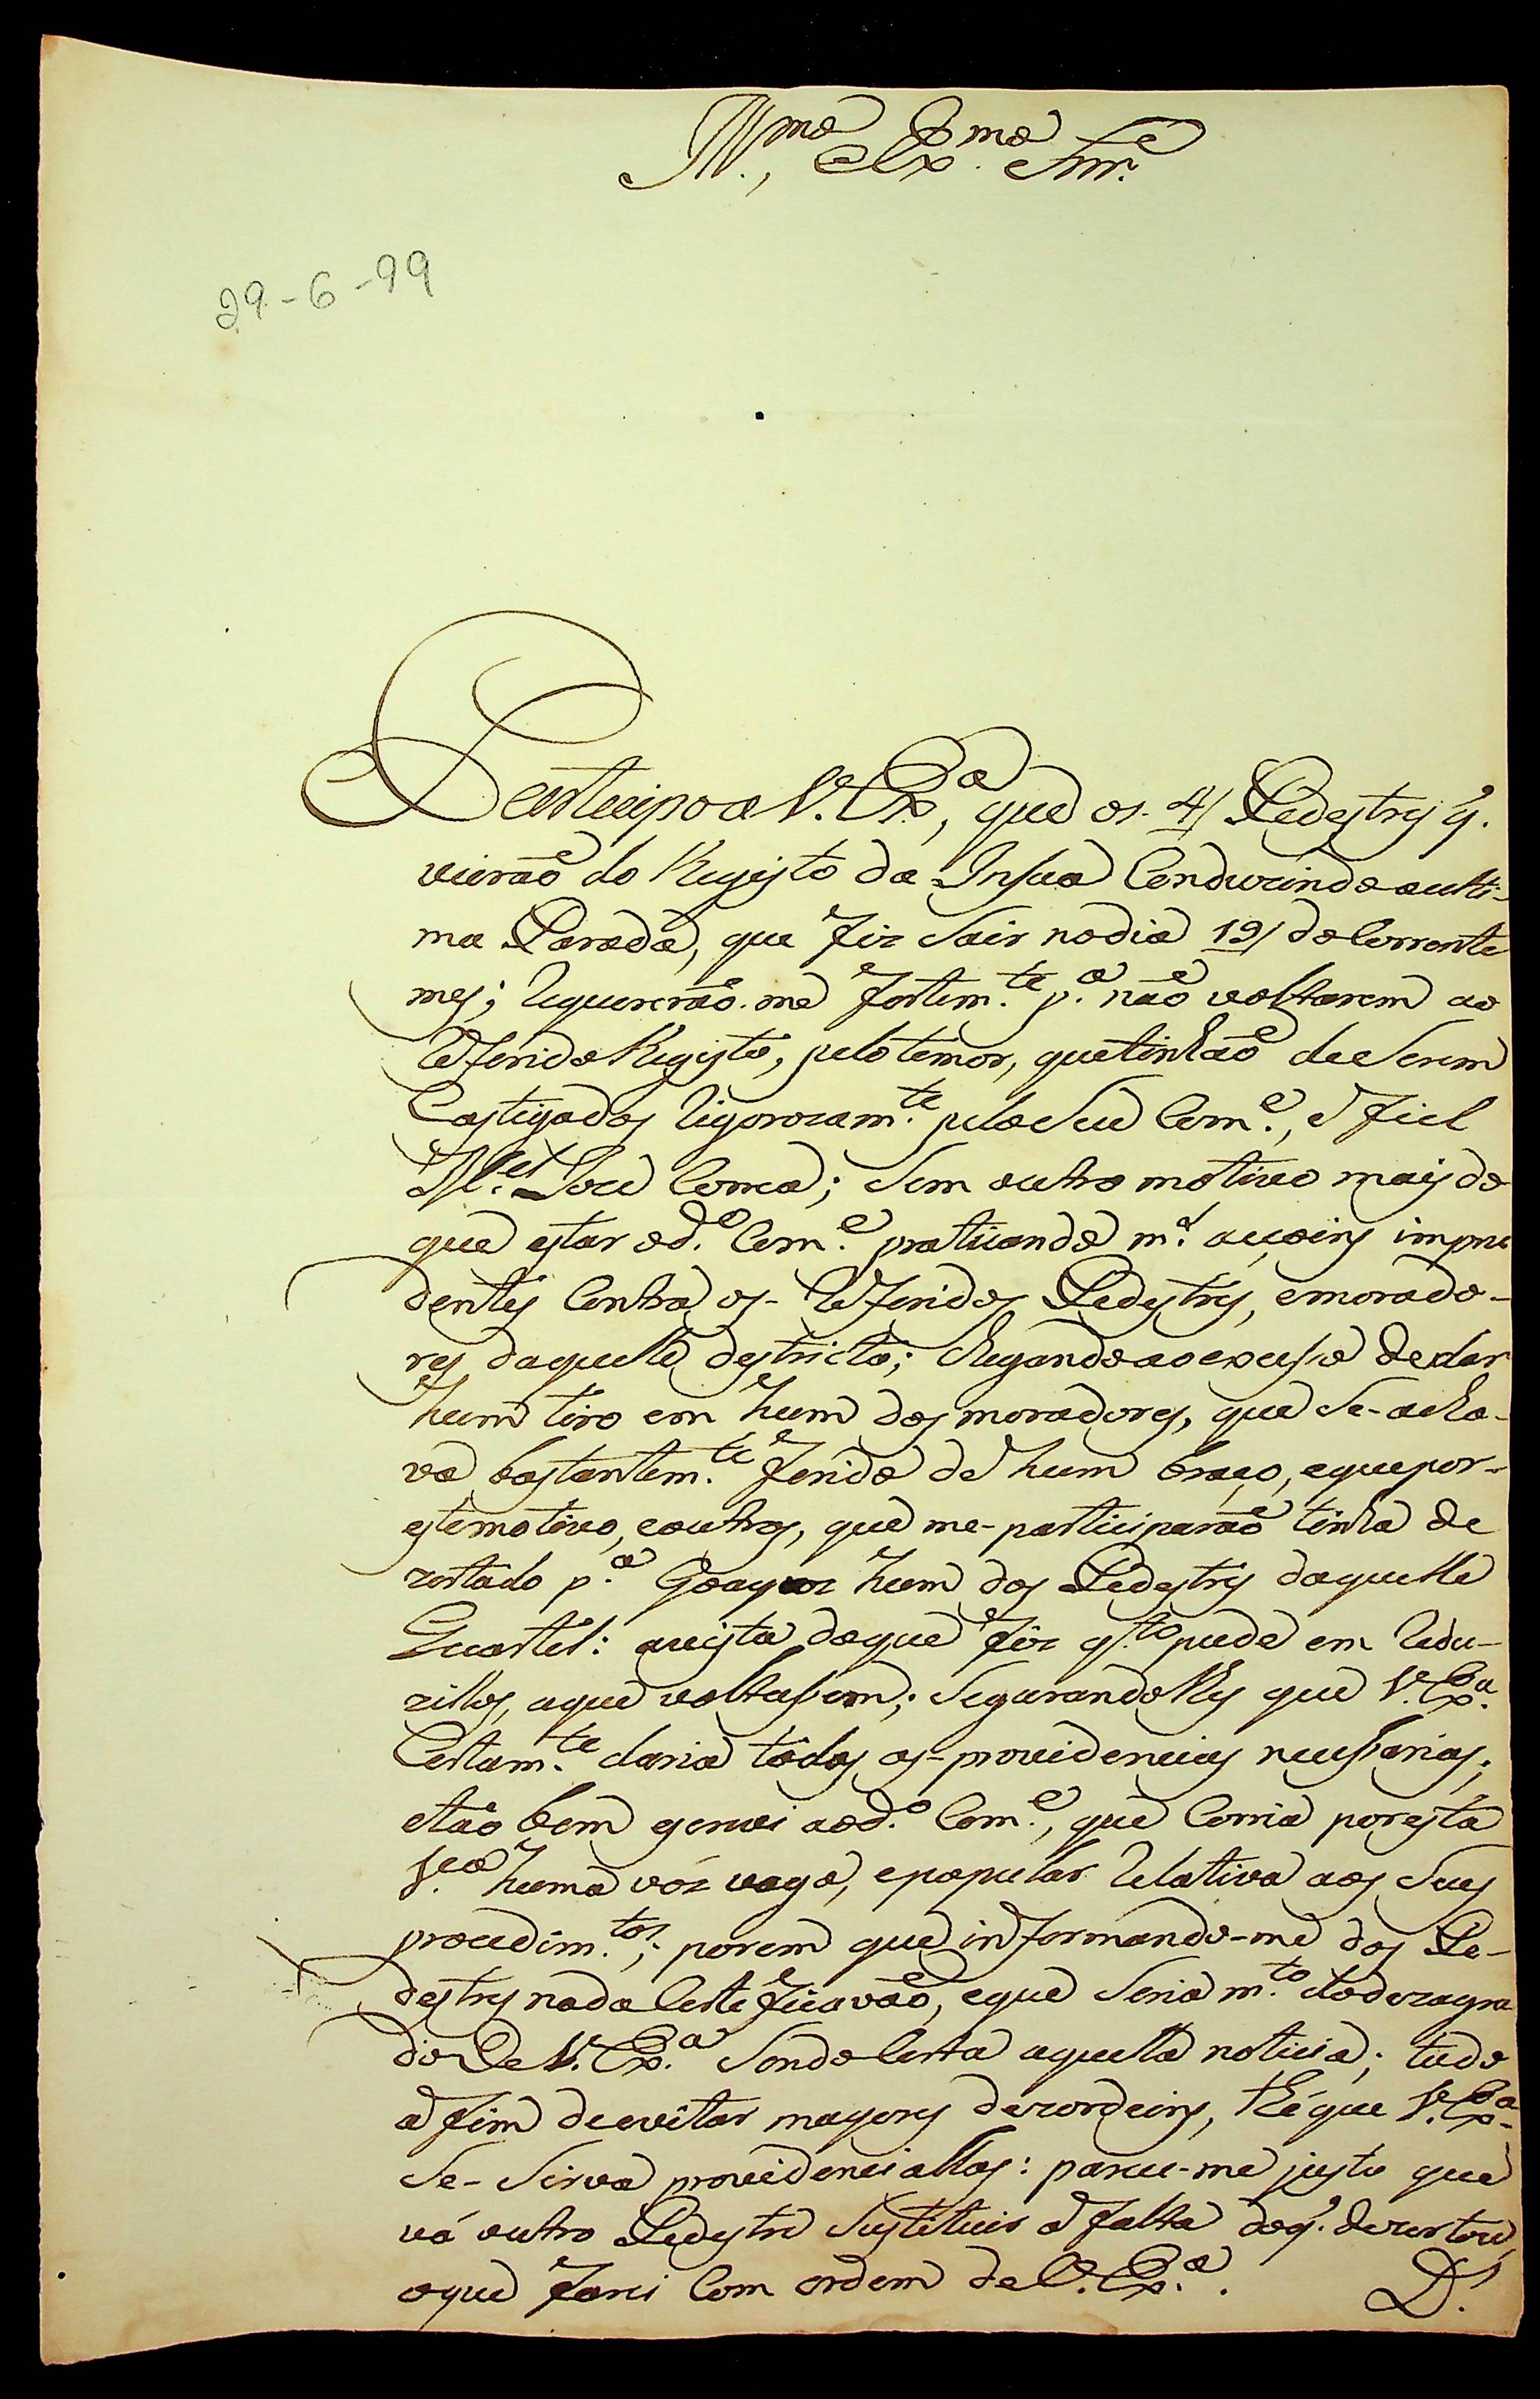 Ill.mo, Ex.mo Snr.e
29-6-99
Participo a V. Ex.ª, que os 4/ Pedestres q.
vierão do Registo da Insua Conduzindo a ulti-
ma Parada, que fiz Sair no dia 19/ do Corrente
mes; requererão-me fortem.te p.ª não voltarem ao
referido Registo, pelo temor, que tinhão de Serem
Castigados rigorozam.te pelo Seu Com.e, e Fiel
M.el Joze Correa; Sem outro motivo mais do
que estar o d.o Com.e praticando m.tas açoins impru
dentes Contra os referidos Pedestres, e morado-
res daquelle destricto; chegando ao excesso de dar
hum tiro em hum dos moradores, que Se-acha-
va bastantem.te ferido de hum braço, e que por-
este motivo, e outros, que me-participarão tinha de
zertado p.ª Goayaz hum dos Pedestres daquelle
Quartel: a vista do que fiz q.to pude em redu-
zillos, a que voltassem; Segurandolhes que V. Ex.ª
Certam.te daria todas as-providencias necessarias;
e tão bem escrevi ao d.o Com.e, que Corria por esta
V.ª huma vóz vaga, e popular relativa aos Seus
procedim.tos; porem que informando-me dos Pe-
destres nada Certeficavão, e que Seria m.to do dezagra
do de V. Ex.ª Sendo Certa aquella noticia; tudo
a fim de evitar mayores dezordeins, thé que V. Ex.ª
Se-Sirva providenciallas: parece-me justo que
vá outro Pedestre Sustituir a falta do q. dezertou,
o que farei Com ordem de V. Ex.ª. D.s